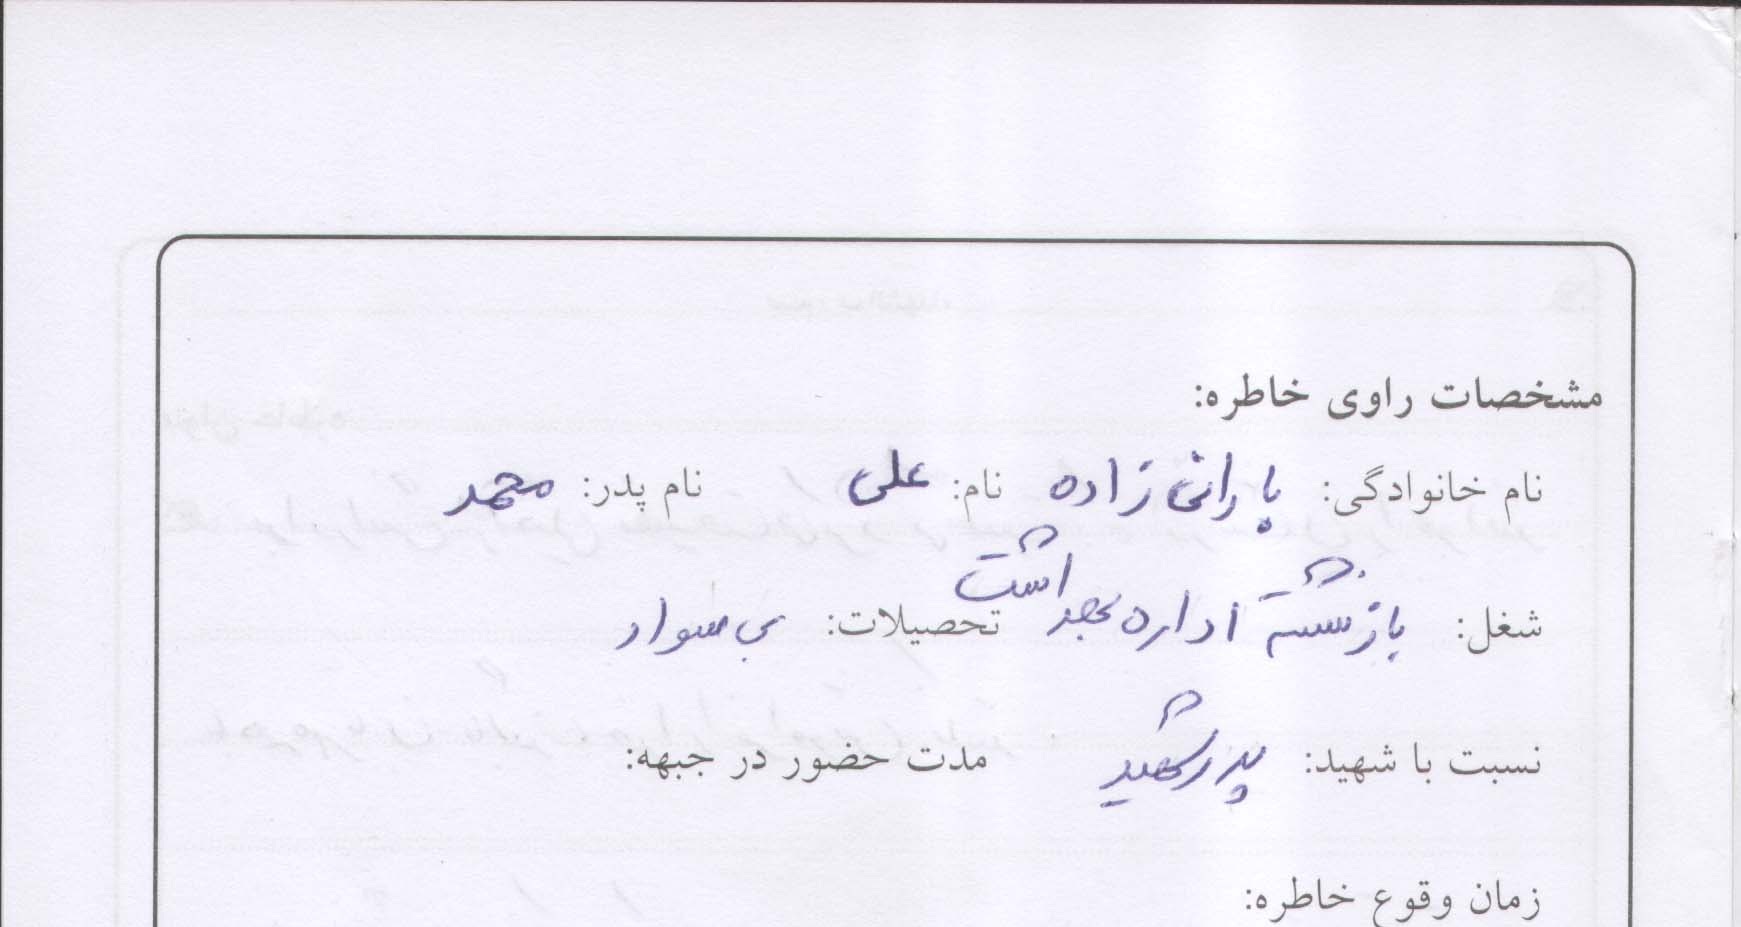 مشخصات راوی خاطره:
نام خانوادگی: بارانی زاده نام: علی نام پدر: محمد
شغل: بازنشسته اداره بهداشت تحصیلات: بی سواد
نسبت با شهید: پدر شهید مدت حضور در جبهه:
زمان وقوع خاطره: